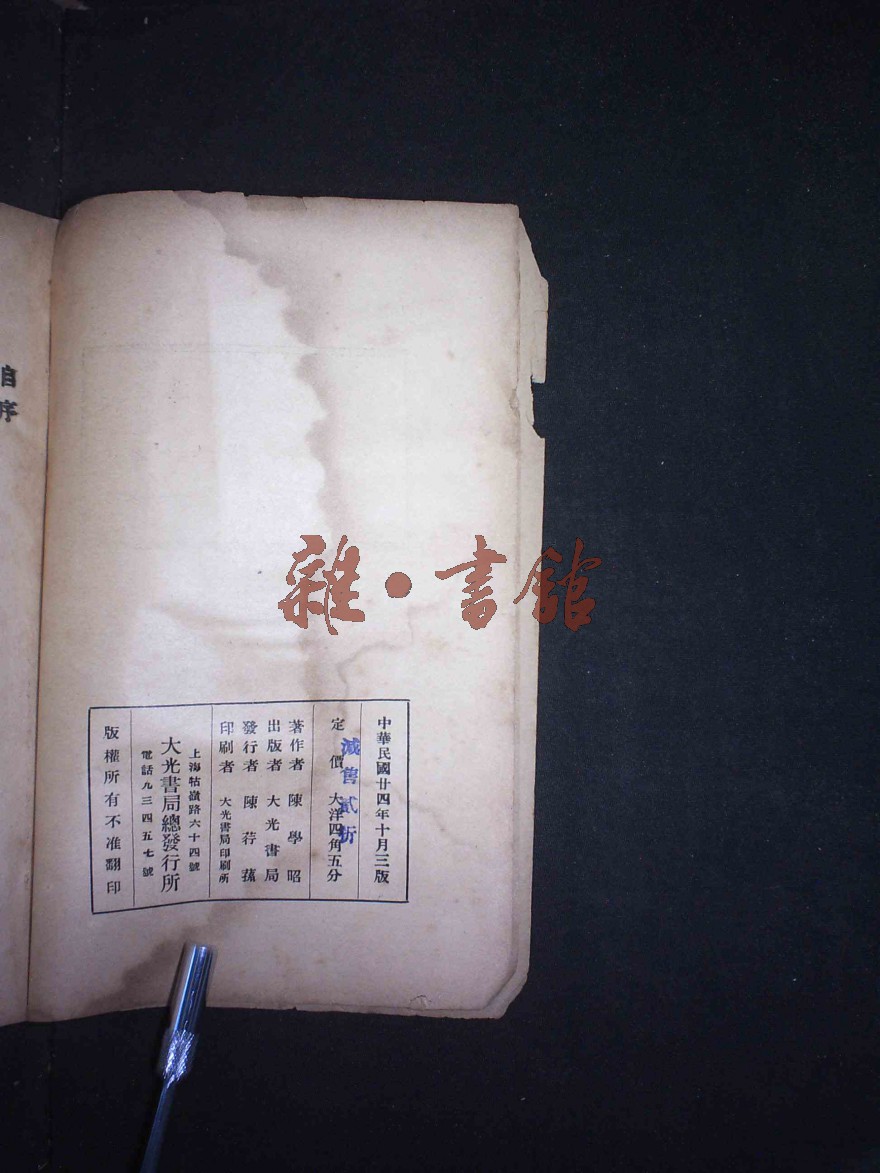 自序
中華民國廿四年十月三版
定價 大洋四角五分
減售貳折
著作者 陳學昭
出版者 大光書局
發行者 陳荇蓀
印刷者 大光書局印刷所
上海牯嶺路六十四號
大光書局總發行所
電話九三四五七號
版權所有不准翻印
雜·書館